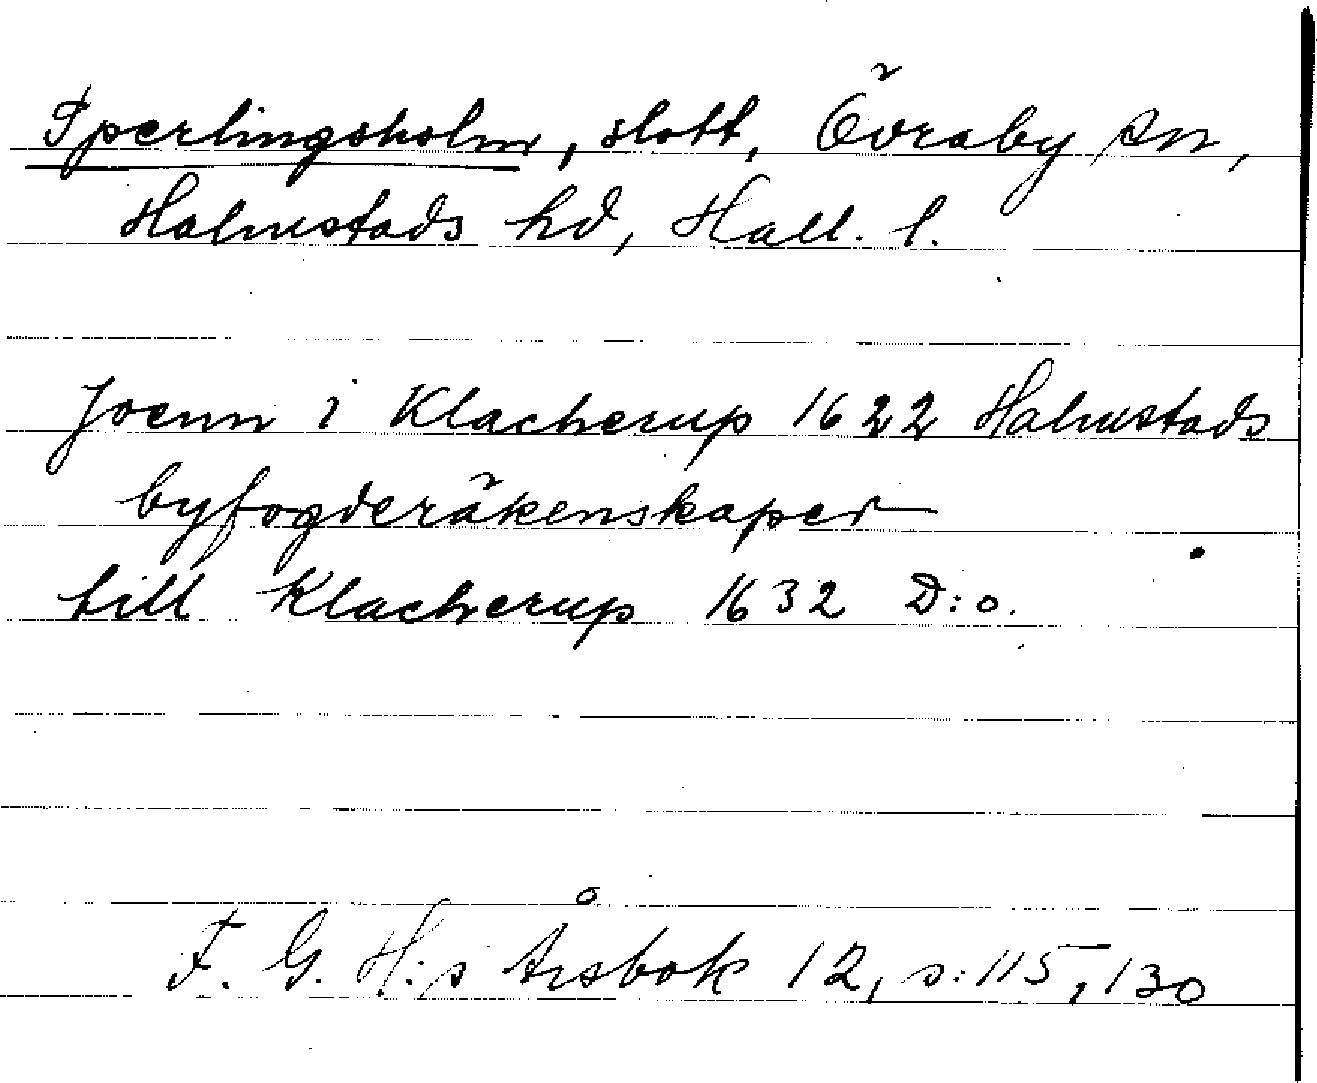 Sperlingsholm, slott, Övraby sn,
Halmstads hd, Hall. l.
Joenn i Klacherup 1622 Halmstads
byfogderäkenskaper
till Klacherup 1632 D:o.
F. G. H:s Årsbok 12, s: 115, 130